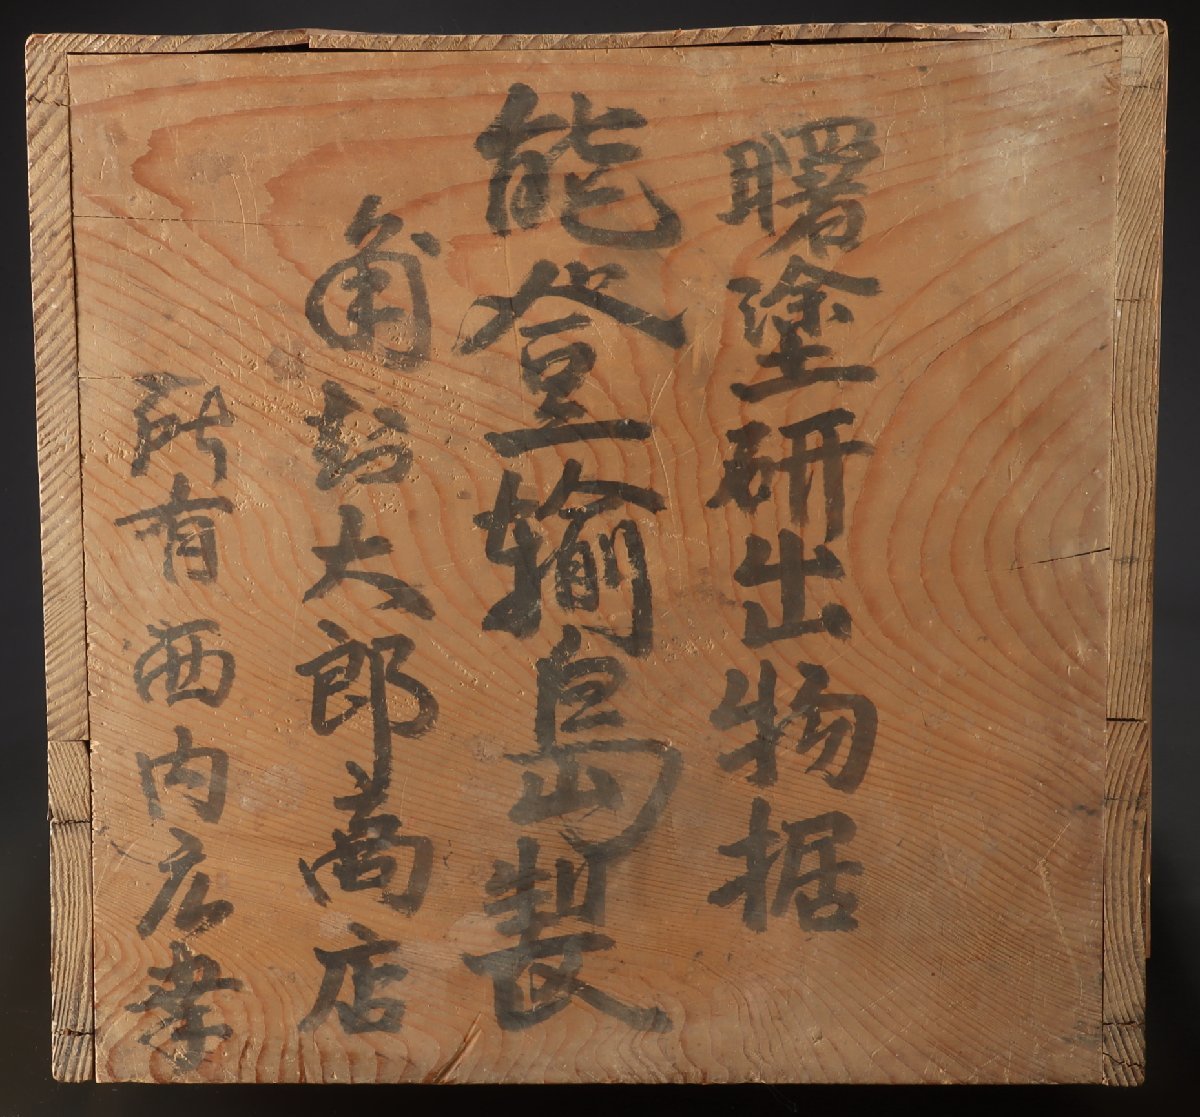 曙塗研出物据
能登輪島製
角大郎商店
所有西内広